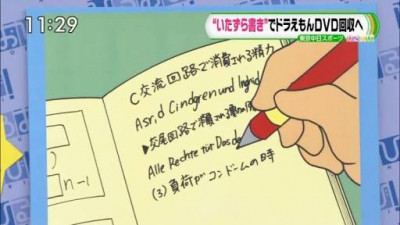 11:29
“いたずら書き”でドラえもんDVD回収へ
東京中日スポーツ
C交流回路で消費される精力
Asr,d Cindgren und Ingrid
▶交尾回路で精される
Alle Rechte für Das de
(3)負荷がコンドームの時
n-1